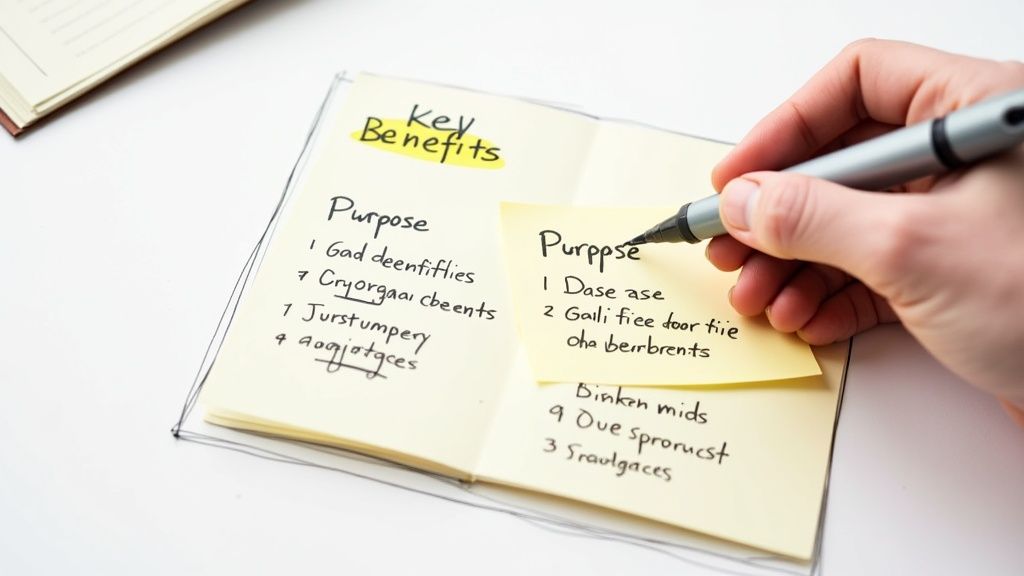 Key
Benefits
Purpose
1 Gad deenfiflies
7 Cryorgaai cbeents
1 Jurstumpery
4 aogjotgces
Purppse
1 Dase ase
2 Gaili fiee door fiie
oha berbrents
Binken mids
9 Oue sprorucst
3 Sraulgaces